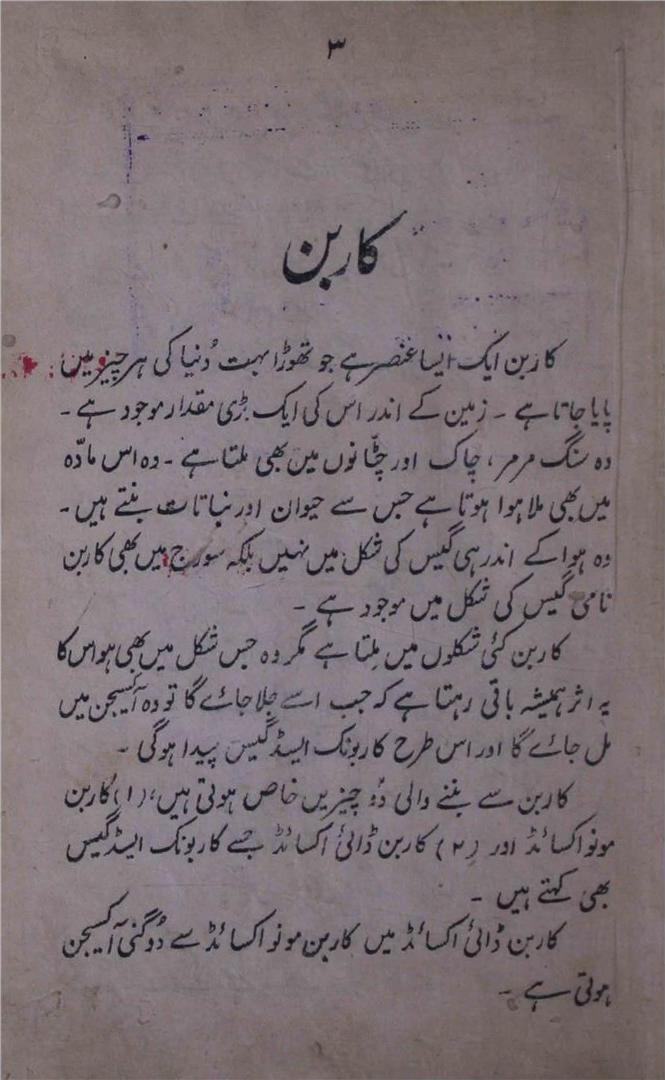 ۳
کاربن
کاربن ایک ایسا عنصر ہے جو تھوڑا بہت دُنیا کی ہر چیز میں
پایا جاتا ہے ۔ زمین کے اندر اس کی ایک بڑی مقدار موجود ہے ۔
وہ سنگ مرمر ، چاک اور چٹانوں میں بھی ملتا ہے ۔ وہ اس مادّہ
میں بھی ملا ہوا ہوتا ہے جس سے حیوان اور نباتات بنتے ہیں ۔
وہ ہوا کے اندر ہی گیس کی شکل میں نہیں بلکہ سورج میں بھی کاربن
نامی گیس کی شکل میں موجود ہے ۔
کاربن کئی شکلوں میں مِلتا ہے مگر وہ جس شکل میں بھی ہو اس کا
یہ اثر ہمیشہ باقی رہتا ہے کہ جب اسے جلا جائے گا تو وہ آکسیجن میں
مل جائے گا اور اس طرح کاربونک ایسڈ گیس پیدا ہوگی ۔
کاربن سے بننے والی دُو چیزیں خاص ہوتی ہیں، (۱) کاربن
مونو اکسائڈ اور (۲) کاربن ڈائی اکسائڈ جسے کاربونک ایسڈ گیس
بھی کہتے ہیں ۔
کاربن ڈائی اکسائڈ میں کاربن مونو اکسائڈ سے دُوگنی آکسیجن
ہوتی ہے ۔